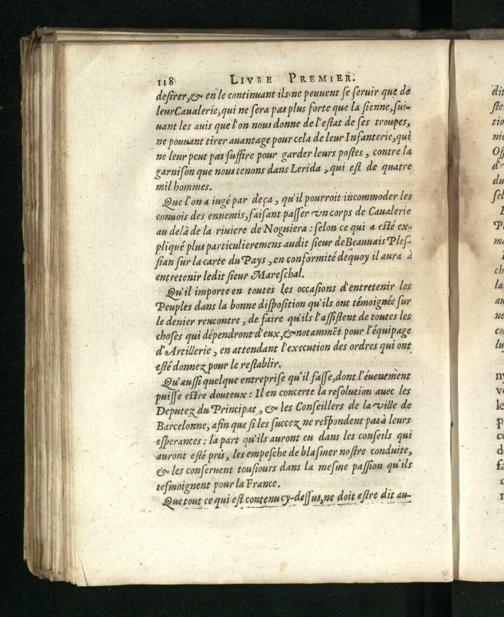 118 LIVRE PREMIER.
desirer,& en le continuant ils ne peuuent se seruir que de
leur Caualerie,qui ne sera pas plus forte que la sienne,sui-
uant les auis que l'on nous donne de l'estat de ses troupes,
ne pouuant tirer auantage pour cela de leur Infanterie,qui
ne leur peut pas suffire pour garder leurs postes, contre la
garnison que nous tenons dans Lerida, qui est de quatre
mil hommes.
Que l'on a iugé par deça, qu'il pourroit incommoder les
conuois des ennemis,faisant passer vn corps de Caualerie
au delà de la riuiere de Noguiera : selon ce qui a esté ex-
pliqué plus particulieremens audit sieur de Beauuais Ples-
sian sur la carte du Pays, en conformité dequoy il aura à
entretenir ledit sieur Mareschal.
Qu'il importe en toutes les occasions d'entretenir les
Peuples dans la bonne disposition qu'ils ont témoignée sur
le denier rencontre, de faire qu'ils l'assistent de toutes les
choses qui dépendront d'eux,& notammēt pour l'équipage
d'Artillerie, en attendant l'execution des ordres qui ont
esté donnez pour le restablir.
Qu'aussi quelque entreprise qu'il fasse,dont l'éuenement
puisse estre douteux : Il en concerte la resolution auec les
Deputez du Principat, & les Conseillers de la ville de
Barcelonne, afin que si les succez ne respondent pas à leurs
esperances : la part qu'ils auront eu dans les conseils qui
auront esté pris, les empesche de blasmer nostre conduite,
& les conseruent tousiours dans la mesme passion qu'ils
tesmoignent pour la France.
Que tout ce qui est contenu cy-dessus,ne doit estre dit au-